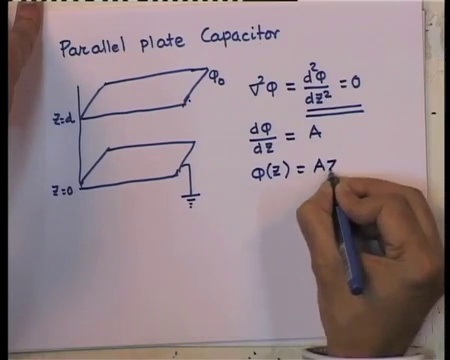 Parallel plate Capacitor
φ₀
z=d
z=0
∇²φ = d²φ/dz² = 0
dφ/dz = A
φ(z) = Az